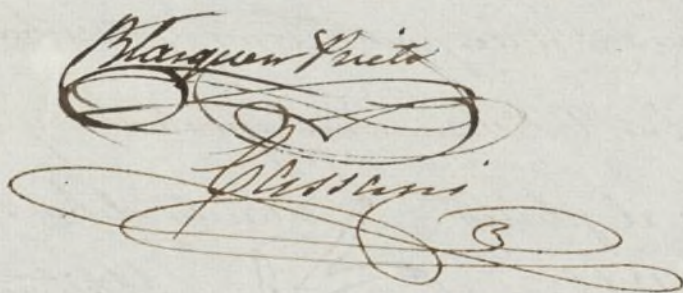 Blazquez Prieto
Cassani